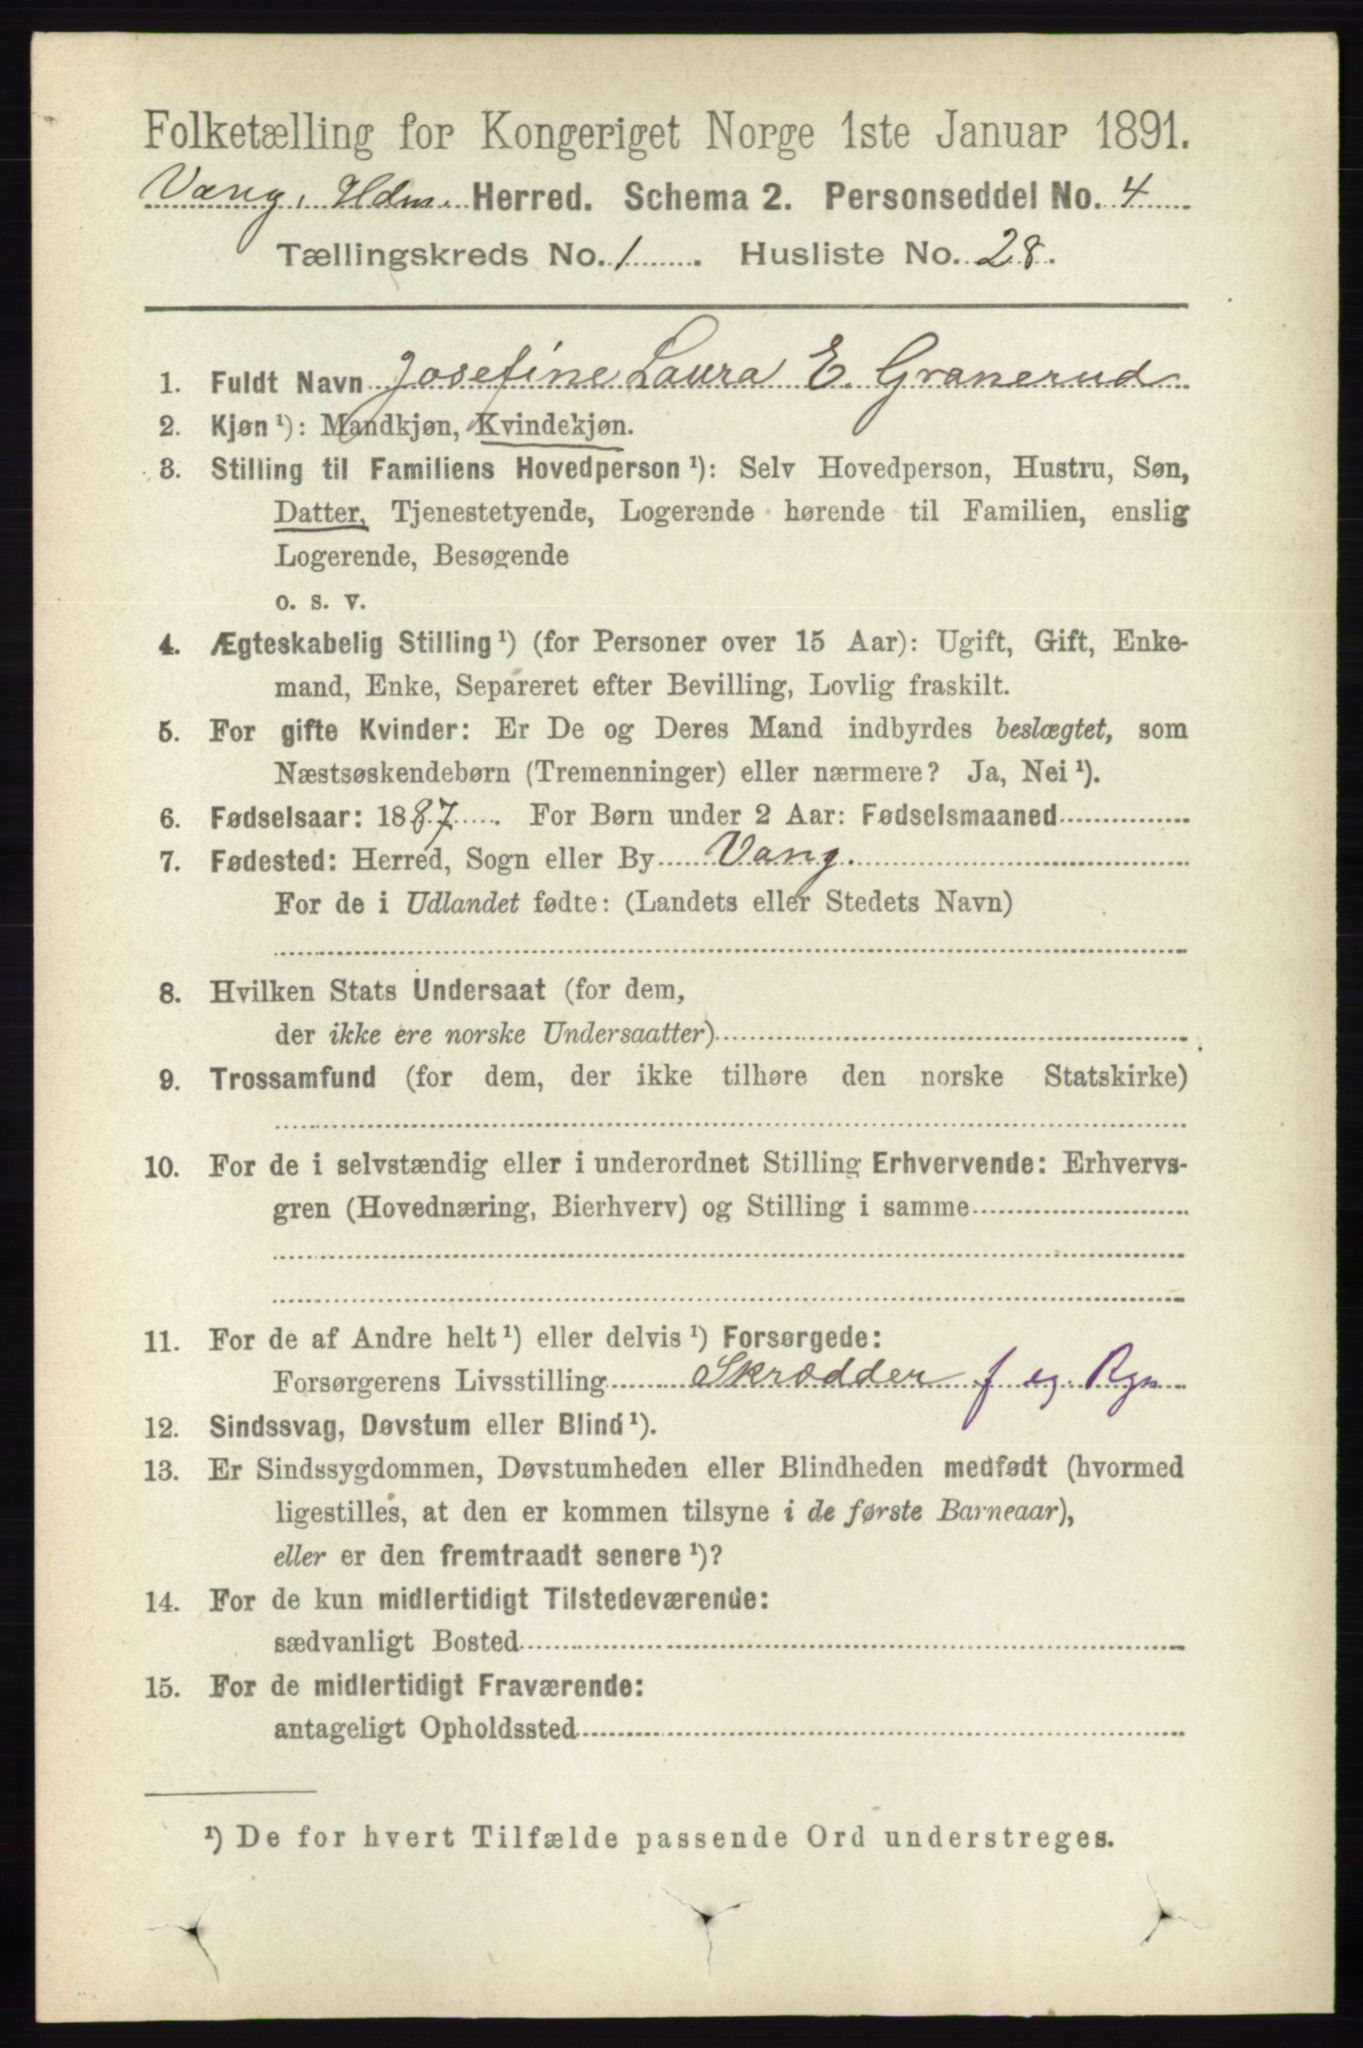 Folketælling for Kongeriget Norge 1ste Januar 1891.
Vang, Hdm. Herred. Schema 2. Personseddel No. 4
Tællingskreds No. 1. Husliste No. 28.
1. Fuldt Navn Josefine Laura E. Granerud
2. Kjøn ¹): Mandkjøn, Kvindekjøn.
3. Stilling til Familiens Hovedperson ¹): Selv Hovedperson, Hustru, Søn,
Datter, Tjenestetyende, Logerende hørende til Familien, enslig
Logerende, Besøgende
o. s. v.
4. Ægteskabelig Stilling ¹) (for Personer over 15 Aar): Ugift, Gift, Enke-
mand, Enke, Separeret efter Bevilling, Lovlig fraskilt.
5. For gifte Kvinder: Er De og Deres Mand indbyrdes beslægtet, som
Næstsøskendebørn (Tremenninger) eller nærmere? Ja, Nei ¹).
6. Fødselsaar: 1887. For Børn under 2 Aar: Fødselsmaaned
7. Fødested: Herred, Sogn eller By Vang.
For de i Udlandet fødte: (Landets eller Stedets Navn)
8. Hvilken Stats Undersaat (for dem,
der ikke ere norske Undersaatter)
9. Trossamfund (for dem, der ikke tilhøre den norske Statskirke)
10. For de i selvstændig eller i underordnet Stilling Erhvervende: Erhvervs-
gren (Hovednæring, Bierhverv) og Stilling i samme
11. For de af Andre helt ¹) eller delvis ¹) Forsørgede:
Forsørgerens Livsstilling Skrædder f eg. Rgn
12. Sindssvag, Døvstum eller Blind ¹).
13. Er Sindssygdommen, Døvstumheden eller Blindheden medfødt (hvormed
ligestilles, at den er kommen tilsyne i de første Barneaar),
eller er den fremtraadt senere ¹)?
14. For de kun midlertidigt Tilstedeværende:
sædvanligt Bosted
15. For de midlertidigt Fraværende:
antageligt Opholdssted
¹) De for hvert Tilfælde passende Ord understreges.